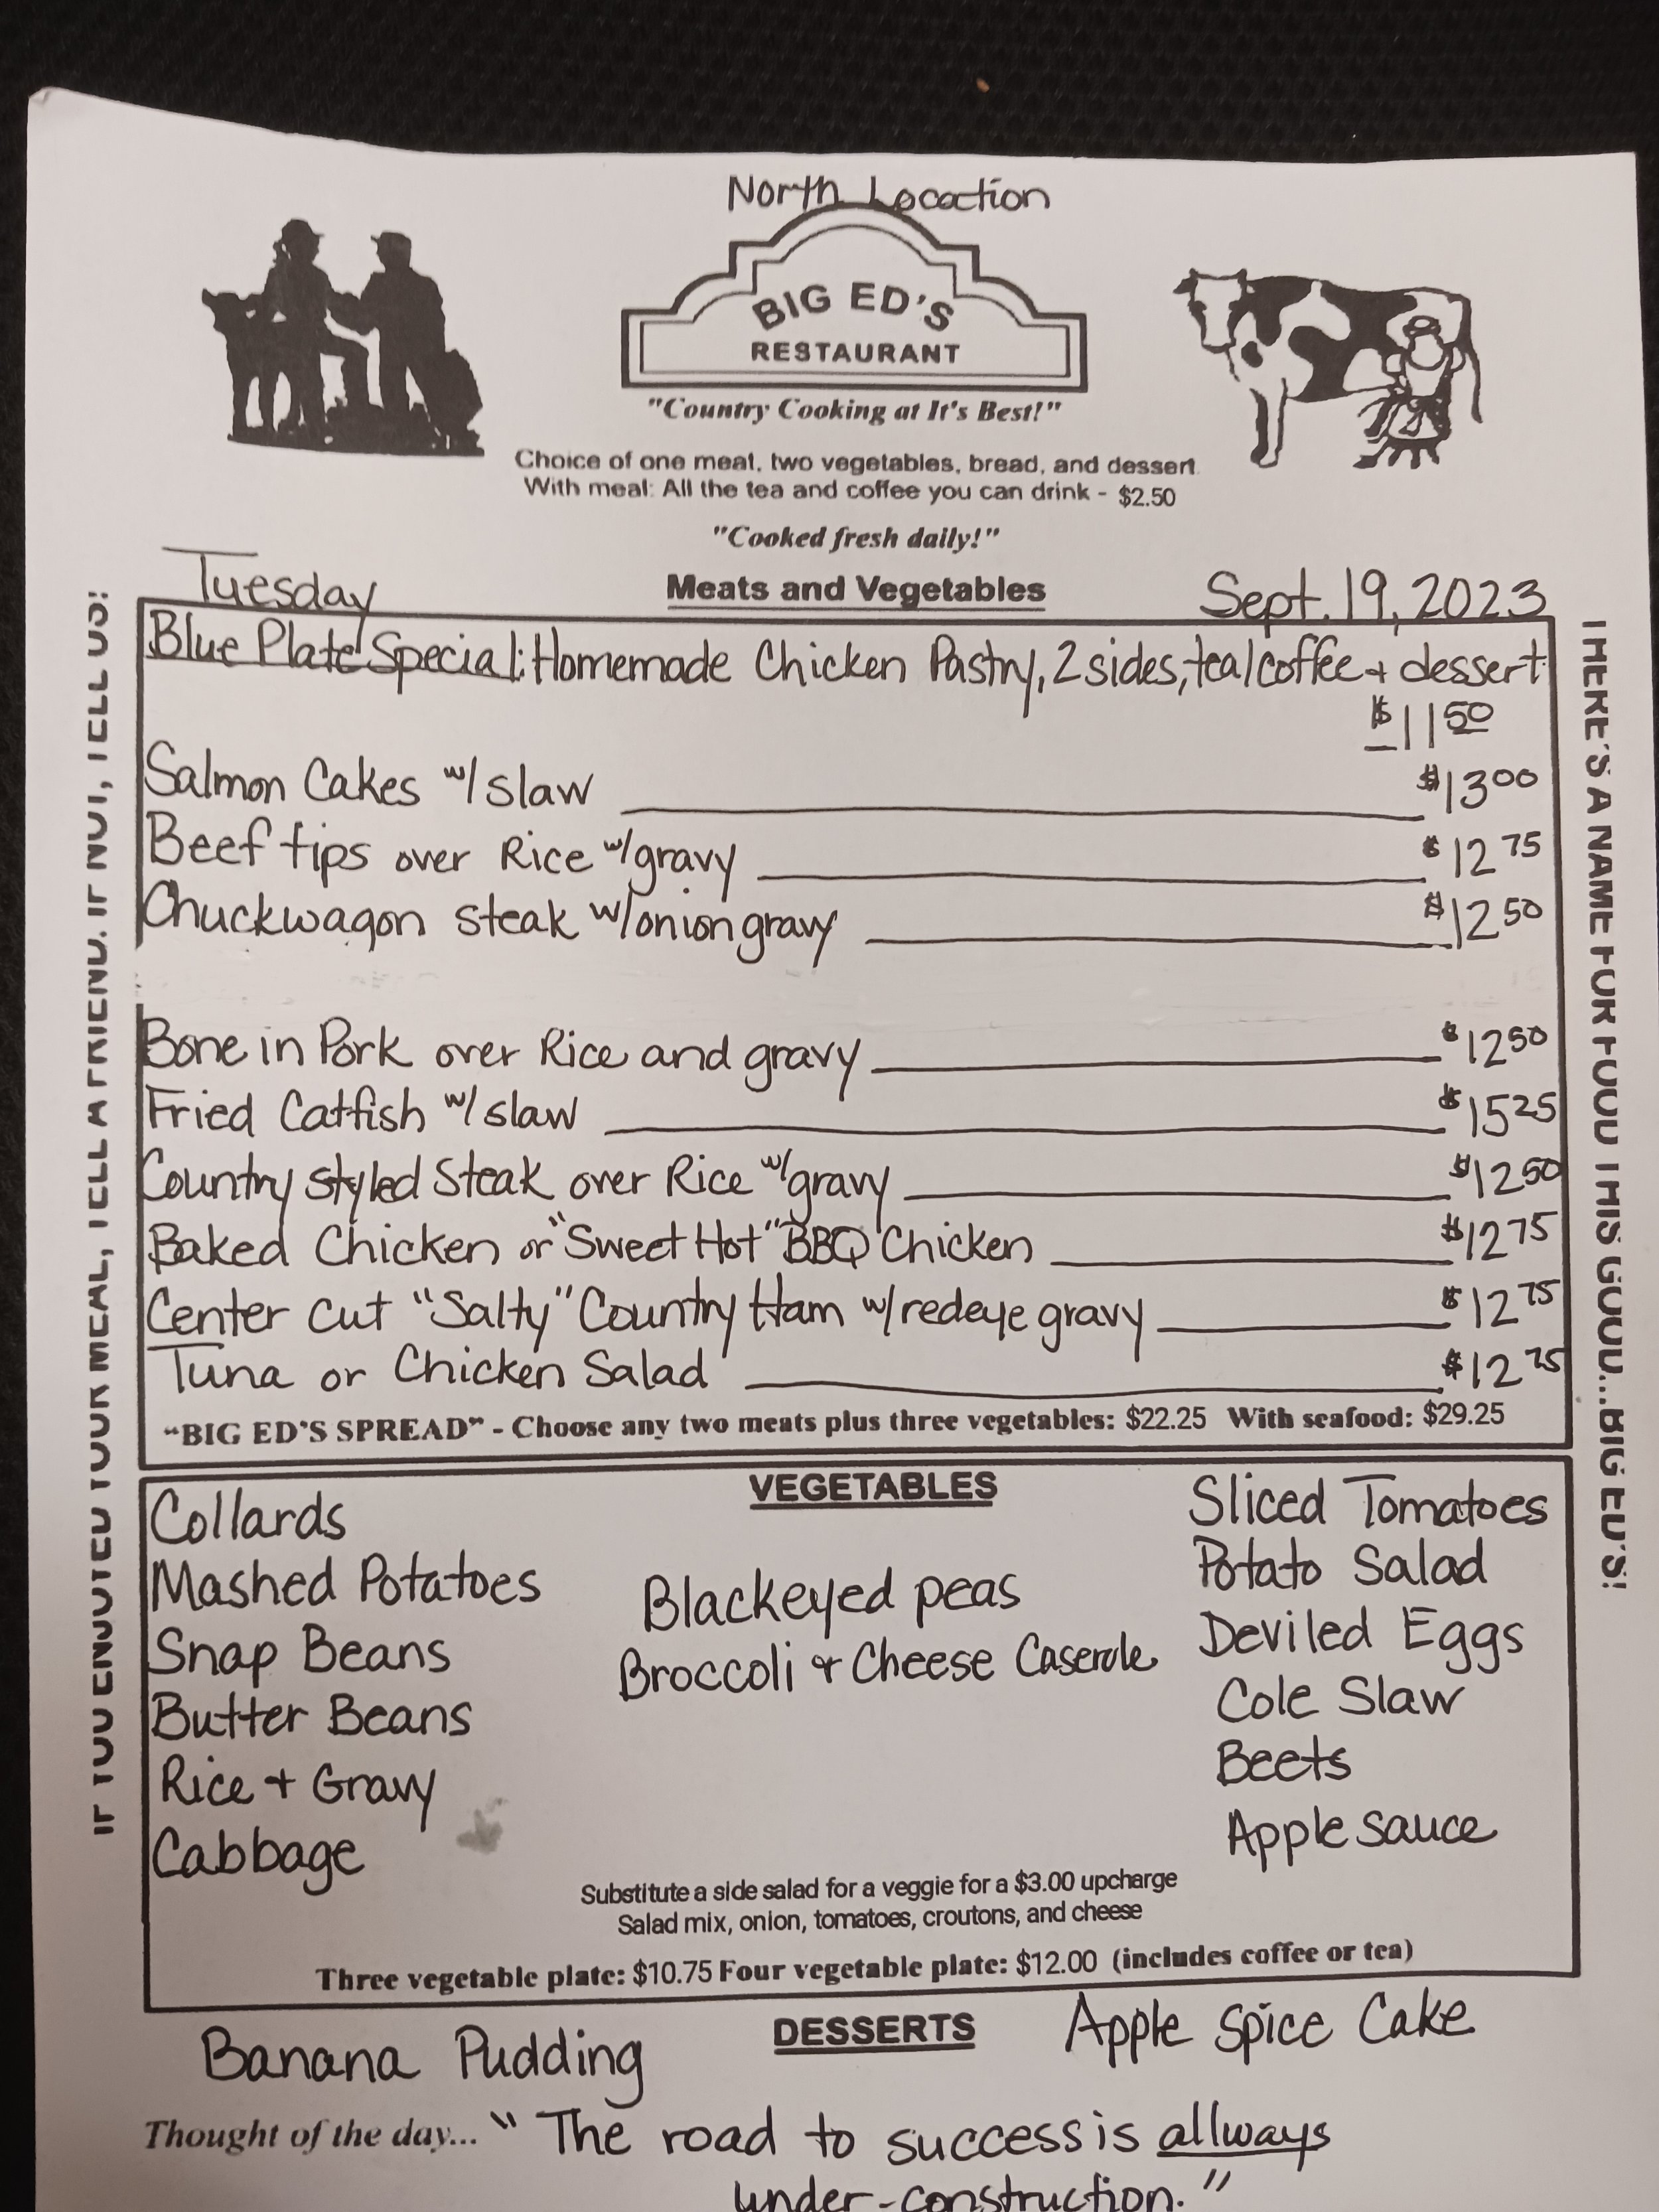 North Location
BIG ED'S
RESTAURANT
"Country Cooking at It's Best!"
Choice of one meat, two vegetables, bread, and dessert.
With meal: All the tea and coffee you can drink - $2.50
"Cooked fresh daily!"
Tuesday Meats and Vegetables Sept. 19, 2023
Blue Plate Special: Homemade Chicken Pastry, 2 sides, tea/coffee + dessert
$11 50
Salmon Cakes w/ slaw $13 00
Beef tips over Rice w/ gravy $12 75
Chuckwagon steak w/ onion gravy $12 50
Bone in Pork over Rice and gravy $12 50
Fried Catfish w/ slaw $15 25
Country styled Steak over Rice w/ gravy $12 50
Baked Chicken or "Sweet Hot" BBQ Chicken $12 75
Center Cut "Salty" Country Ham w/ redeye gravy $12 75
Tuna or Chicken Salad $12 75
"BIG ED'S SPREAD" - Choose any two meats plus three vegetables: $22.25 With seafood: $29.25
VEGETABLES
Collards
Mashed Potatoes
Snap Beans
Butter Beans
Rice + Gravy
Cabbage
Blackeyed peas
Broccoli & Cheese Caserole
Sliced Tomatoes
Potato Salad
Deviled Eggs
Cole Slaw
Beets
Apple sauce
Substitute a side salad for a veggie for a $3.00 upcharge
Salad mix, onion, tomatoes, croutons, and cheese
Three vegetable plate: $10.75 Four vegetable plate: $12.00 (includes coffee or tea)
DESSERTS
Banana Pudding
Apple Spice Cake
Thought of the day... "The road to success is allways
under-construction."
IF YOU ENJOYED YOUR MEAL, TELL A FRIEND. IF NOT, TELL US!
THERE'S A NAME FOR FOOD THIS GOOD...BIG ED'S!